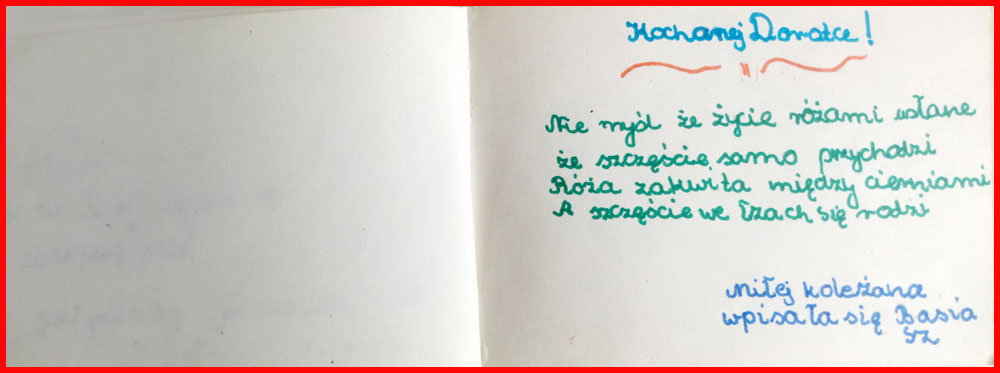 Kochanej Dorotce!
Nie myśl że życie różami usłane
że szczęście samo przychodzi
Róża zakwita między cierniami
A szczęście we łzach się rodzi
Miłej koleżana
wpisała się Basia
SZ